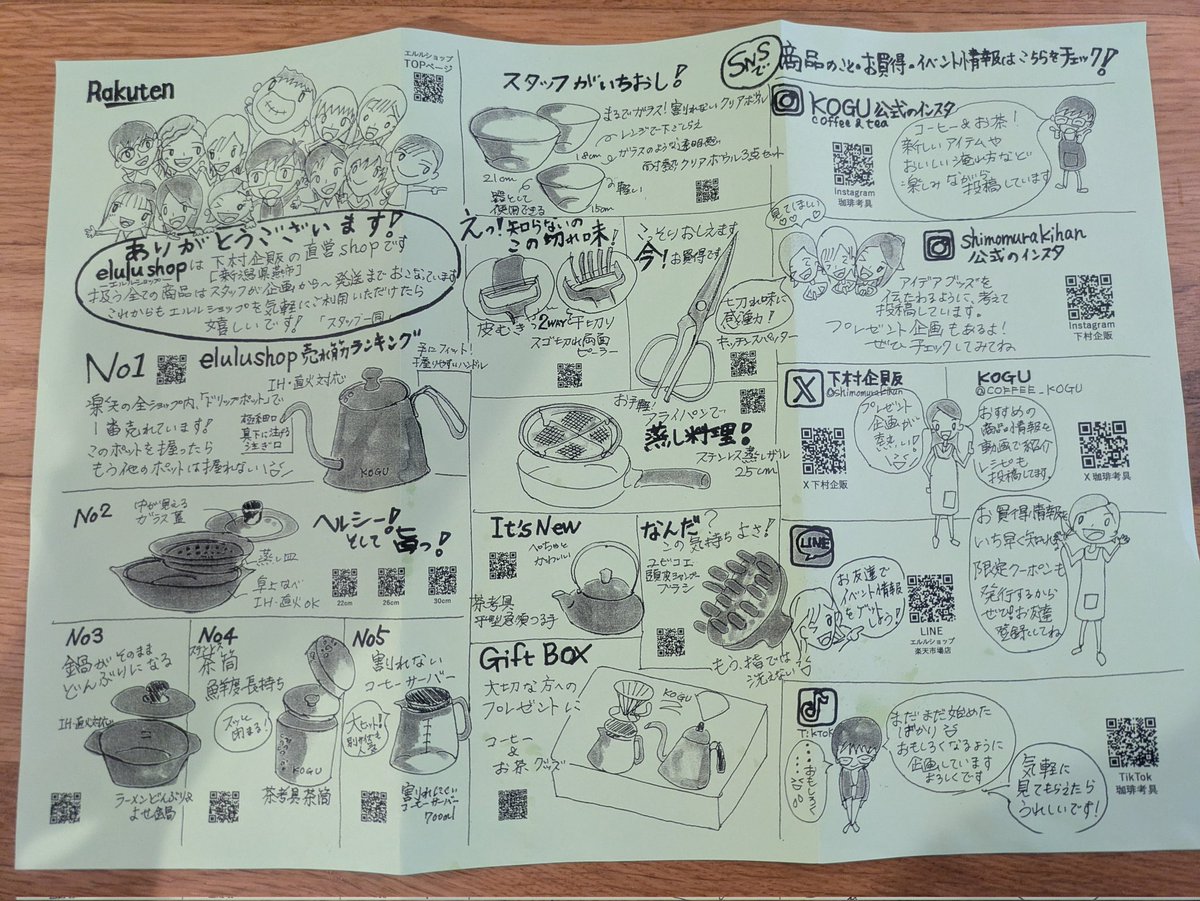 Rakuten
エルルショップ
TOPページ
ありがとうございます!
elulu shopは下村企販の直営shopです
エルルショップ
[新潟県燕市]
扱う全ての商品はスタッフが企画から〜発送までおこなっています
これからもエルルショップを気軽にご利用いただけたら
嬉しいです! 「スタッフ一同」
No1 elulushop 売れ筋ランキング
手にフィット!
握りやすいハンドル
IH・直火対応
楽天の全ショップ内、「ドリップポット」で
1番売れています!
このポットを握ったら
もう他のポットは握れない
極細口
真下に注げる
注ぎ口
KOGU
No2
中が見える
ガラス蓋
蒸し皿
卓上なべ
IH・直火OK
ヘルシー!
そして旨っ!
22cm
26cm
30cm
No3
鍋がそのまま
どんぶりになる
IH・直火対応
ラーメンどんぶり
よせ鍋
No4
茶筒
鮮度長持ち
スッと
閉まる!
KOGU
茶考具茶筒
No5
割れない
コーヒーサーバー
大ヒット!
割れにくい
コーヒーサーバー
700ml
スタッフがいちおし!
まるでガラス!割れないクリアボウル
レンジで下ごしらえ
ガラスのような透明感
耐熱クリアボウル3点セット
21cm
18cm
15cm
軽い
器として
使用できる
えっ!知らないの
この切れ味!
皮むき
2way
千切り
スゴ切れ両面
ピーラー
こっそりおしえます
今!お買得です
切れ味に
感動!
キッチンスパッター
お手軽
フライパンで
蒸し料理!
ステンレス蒸しザル
25cm
It's New
ぺちゃっと
かわいい
茶考具
平型急須つる手
なんだ?
この気持ちよさ!
ユビコエ
頭皮シャンプー
ブラシ
もう指では
洗えない
Gift BOX
大切な方への
プレゼントに
コーヒー
&
お茶グッズ
KOGU
SNSで
商品のこと・お買得・イベント情報はこちらをチェック!
KOGU公式のインスタ
coffee & tea
Instagram
珈琲考具
コーヒー&お茶!
新しいアイテムや
おいしい淹れ方など
楽しみながら
投稿しています
見てほしい
shimomurakihan
公式のインスタ
アイデアグッズを
伝わるように、考えて
投稿しています。
プレゼント企画もあるよ!
ぜひチェックしてみてね
Instagram
下村企販
X
下村企販
@shimomurakihan
プレゼント
企画が
熱い!
X 下村企販
KOGU
@COFFEE_KOGU
おすすめの
商品の情報を
動画で紹介
レシピも
投稿してます。
X 珈琲考具
LINE
お友達で
イベント情報
をゲット
しよう!
LINE
エルルショップ
楽天市場店
お買得情報を
いち早く知れる!
限定クーポンも
発行するから
ぜひ!お友達
登録してね
TikTok
まだまだ始めた
ばかり
おもしろくなるように
企画しています
よろしくです
気軽に
見てもらえたら
うれしいです!
TikTok
珈琲考具